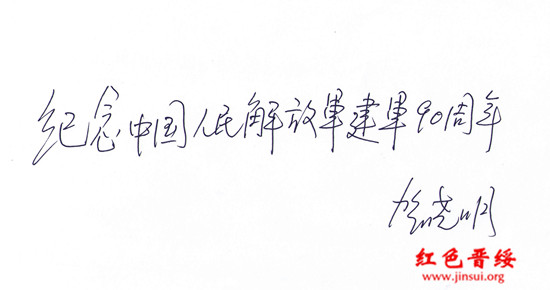 纪念中国人民解放軍建軍90周年
晓明
红色晋绥
www.jinsui.org